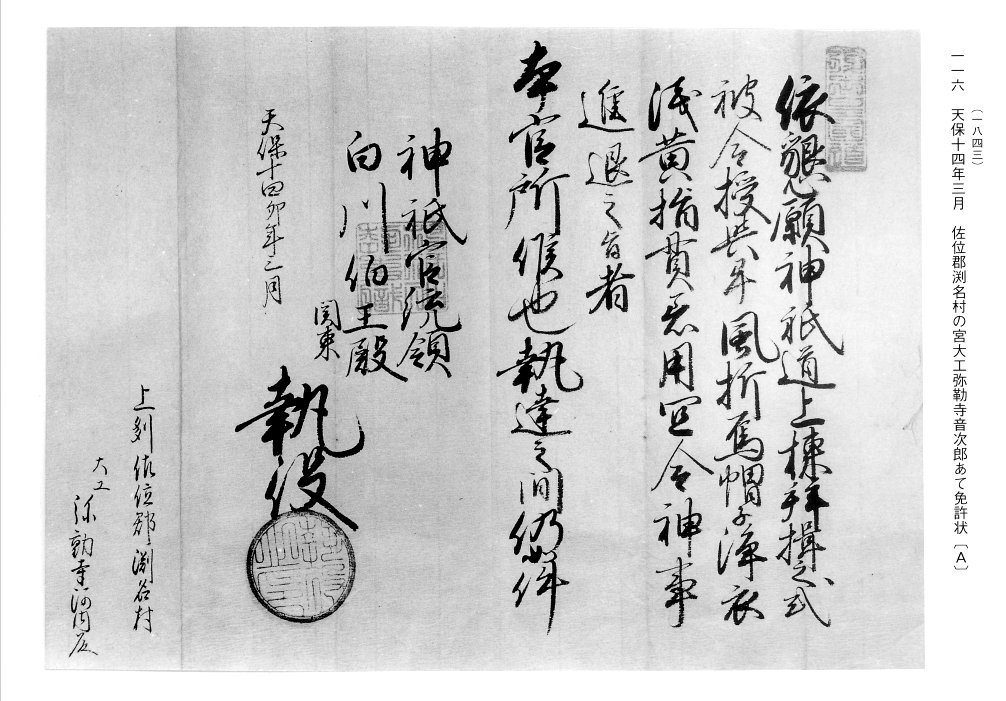 (一八四三)
一一六 天保十四年三月 佐位郡渕名村の宮大工弥勒寺音次郎あて免許状〔A〕
依懇願神祇道上棟拜揖之式
被令授与畢風折烏帽子浄衣
浅黄指貫着用宜令神事
進退之旨者
本官所候也執達之間仍如件
神祇官統領
白川伯王殿
関東
執役
天保十四卯年三月
上刕佐位郡渕名村
大工
弥勒寺河内